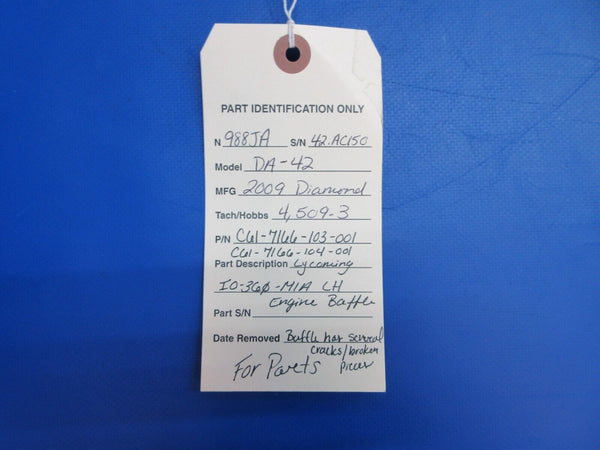 PART IDENTIFICATION ONLY
N 988JA S/N 42.AC150
Model DA-42
MFG 2009 Diamond
Tach/Hobbs 4,509-3
P/N C61-7166-103-001
C61-7166-104-001
Part Description Lycoming
IO-360-M1A LH
Engine Baffle
Part S/N
Date Removed Baffle has several
cracks/broken
For Parts pieces